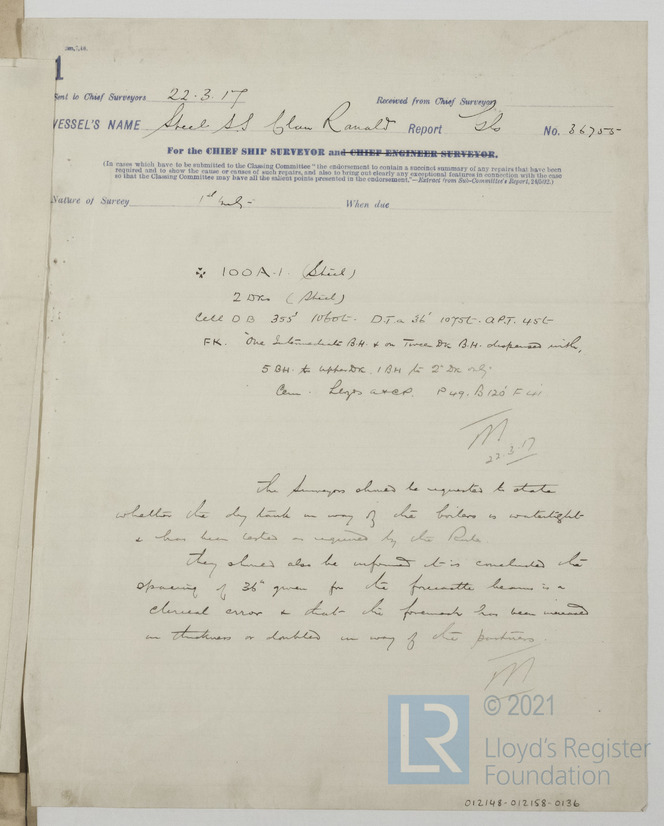 1
Sent to Chief Surveyors 22.3.17 Received from Chief Surveyor
VESSEL'S NAME Steel SS Clan Ranald Report Gls No. 36755
For the CHIEF SHIP SURVEYOR and CHIEF ENGINEER SURVEYOR.
(In cases which have to be submitted to the Classing Committee "the endorsement to contain a succinct summary of any repairs that have been
required and to show the cause or causes of such repairs, and also to bring out clearly any exceptional features in connection with the case
so that the Classing Committee may have all the salient points presented in the endorsement."—Extract from Sub-Committee's Report,
Nature of Survey 1st When due
100A.1. (Steel)
2 Dks (Steel)
Cell DB 355' 1060t. D.T. 36' 1075t. APT. 45t
FK. One Intermediate B.H. & on Tween Dk B.H. dispensed with,
5 BH to upper Dk. 1 BH to 2nd Dk only.
Cem. Lloyds A&CP. P 49. B 120' F 41
22.3.17
The Surveyors should be requested to state
whether the dry tank in way of the boilers is watertight
& has been tested as required by the Rules.
They should also be informed it is concluded the
spacing of 36" given for the forecastle beams is a
clerical error & that the foremast has been increased
in thickness or doubled in way of the partners.
LR
© 2021
Lloyd's Register
Foundation
012148-012158-0136